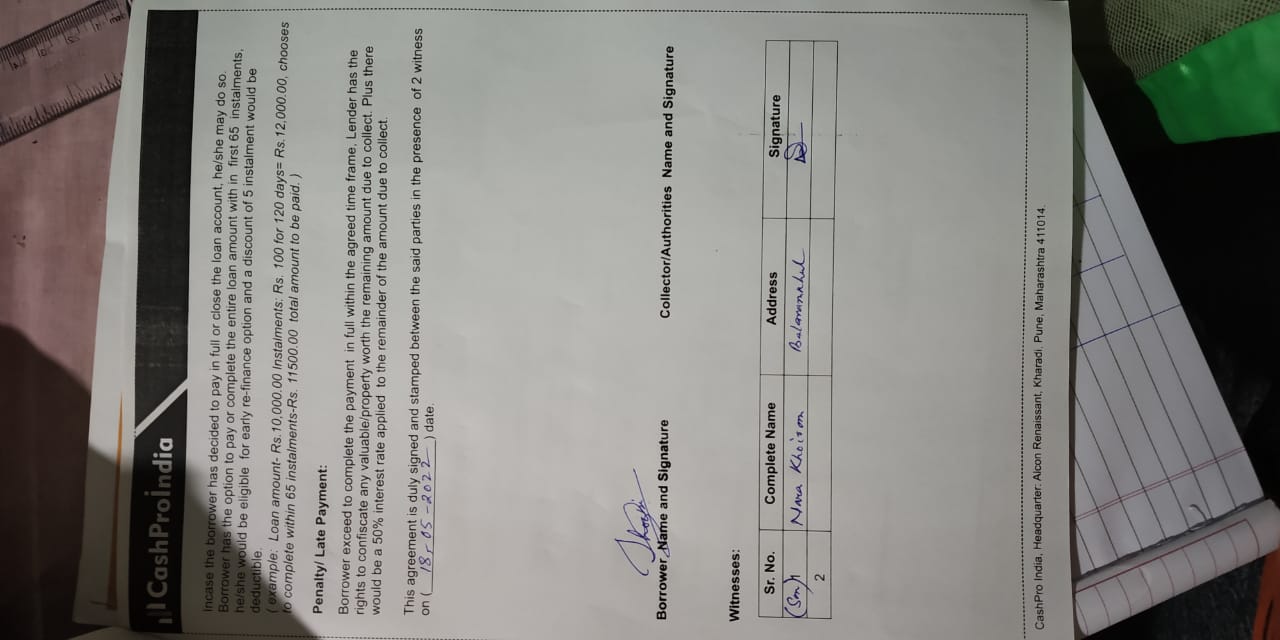 CashProIndia
Incase the borrower has decided to pay in full or close the loan account, he/she may do so.
Borrower has the option to pay or complete the entire loan amount with in first 65 instalments,
he/she would be eligible for early re-finance option and a discount of 5 instalment would be
deductible.
( example: Loan amount- Rs.10,000.00 Instalments: Rs. 100 for 120 days= Rs.12,000.00, chooses
to complete within 65 instalments-Rs. 11500.00 total amount to be paid. )
Penalty/ Late Payment:
Borrower exceed to complete the payment in full within the agreed time frame, Lender has the
rights to confiscate any valuable/property worth the remaining amount due to collect. Plus there
would be a 50% interest rate applied to the remainder of the amount due to collect.
This agreement is duly signed and stamped between the said parties in the presence of 2 witness
on ( 18-05-2022 ) date.
Borrower Name and Signature Collector/Authorities Name and Signature
Witnesses:
Sr. No. Complete Name Address Signature
(Son) 1 Khoisom
2
CashPro India, Headquarter: Alcon Renaissant, Kharadi, Pune, Maharashtra 411014.